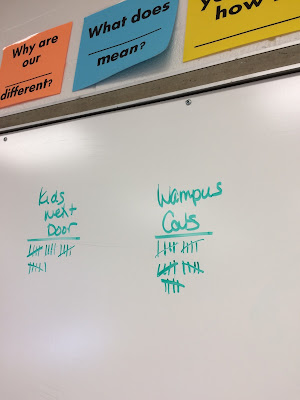 Why are
our
different?
What does
mean?
how
Kids
Next
Door
Wampus
Cats